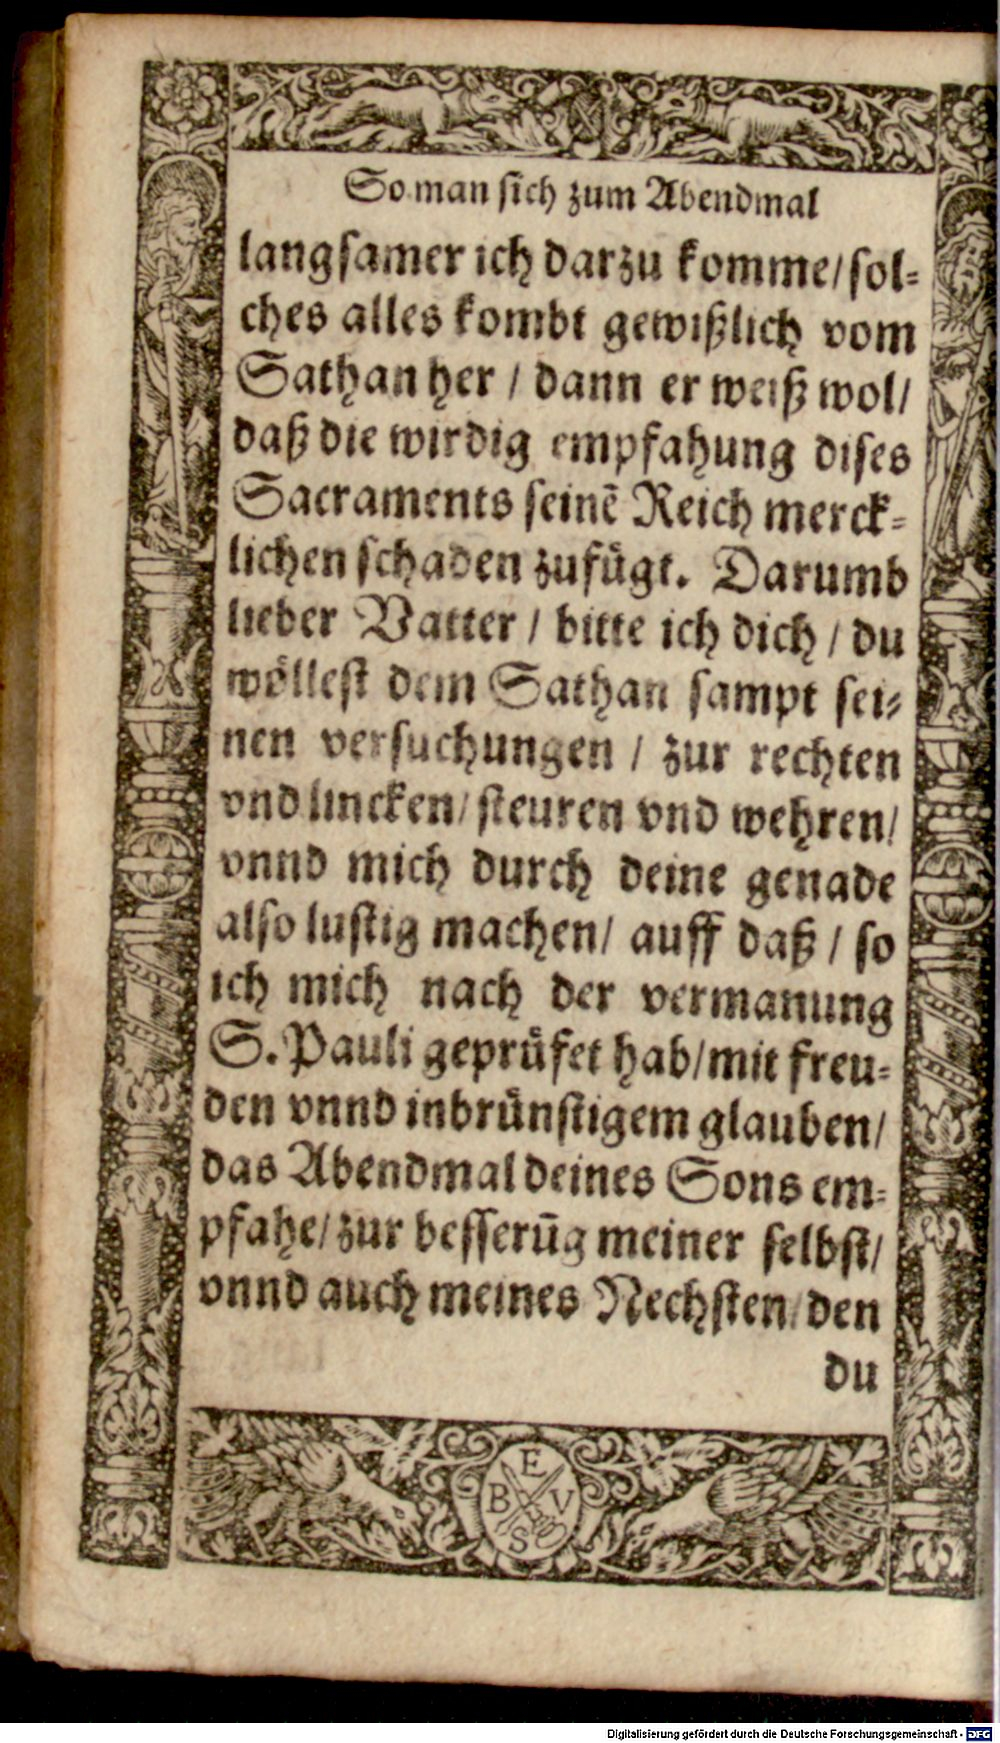 So man sich zum Abendmal
langsamer ich darzu komme/ sol⸗
ches alles kombt gewißlich vom
Sathan her / dann er weiß wol/
daß die wirdig empfahung dises
Sacraments seinē Reich merck⸗
lichen schaden zufuͤgt. Darumb
lieber Vatter / bitte ich dich / du
woͤllest dem Sathan sampt sei⸗
nen versuchungen / zur rechten
vnd lincken/ steuren vnd wehren/
vnnd mich durch deine genade
also lustig machen/ auff daß / so
ich mich nach der vermanung
S. Pauli gepruͤfet hab/ mit freu⸗
den vnnd inbruͤnstigem glauben/
das Abendmal deines Sons em⸗
pfahe/ zur besserūg meiner selbst/
vnnd auch meines Nechsten/ den
du
E
B V
S
Digitalisierung gefördert durch die Deutsche Forschungsgemeinschaft - DFG